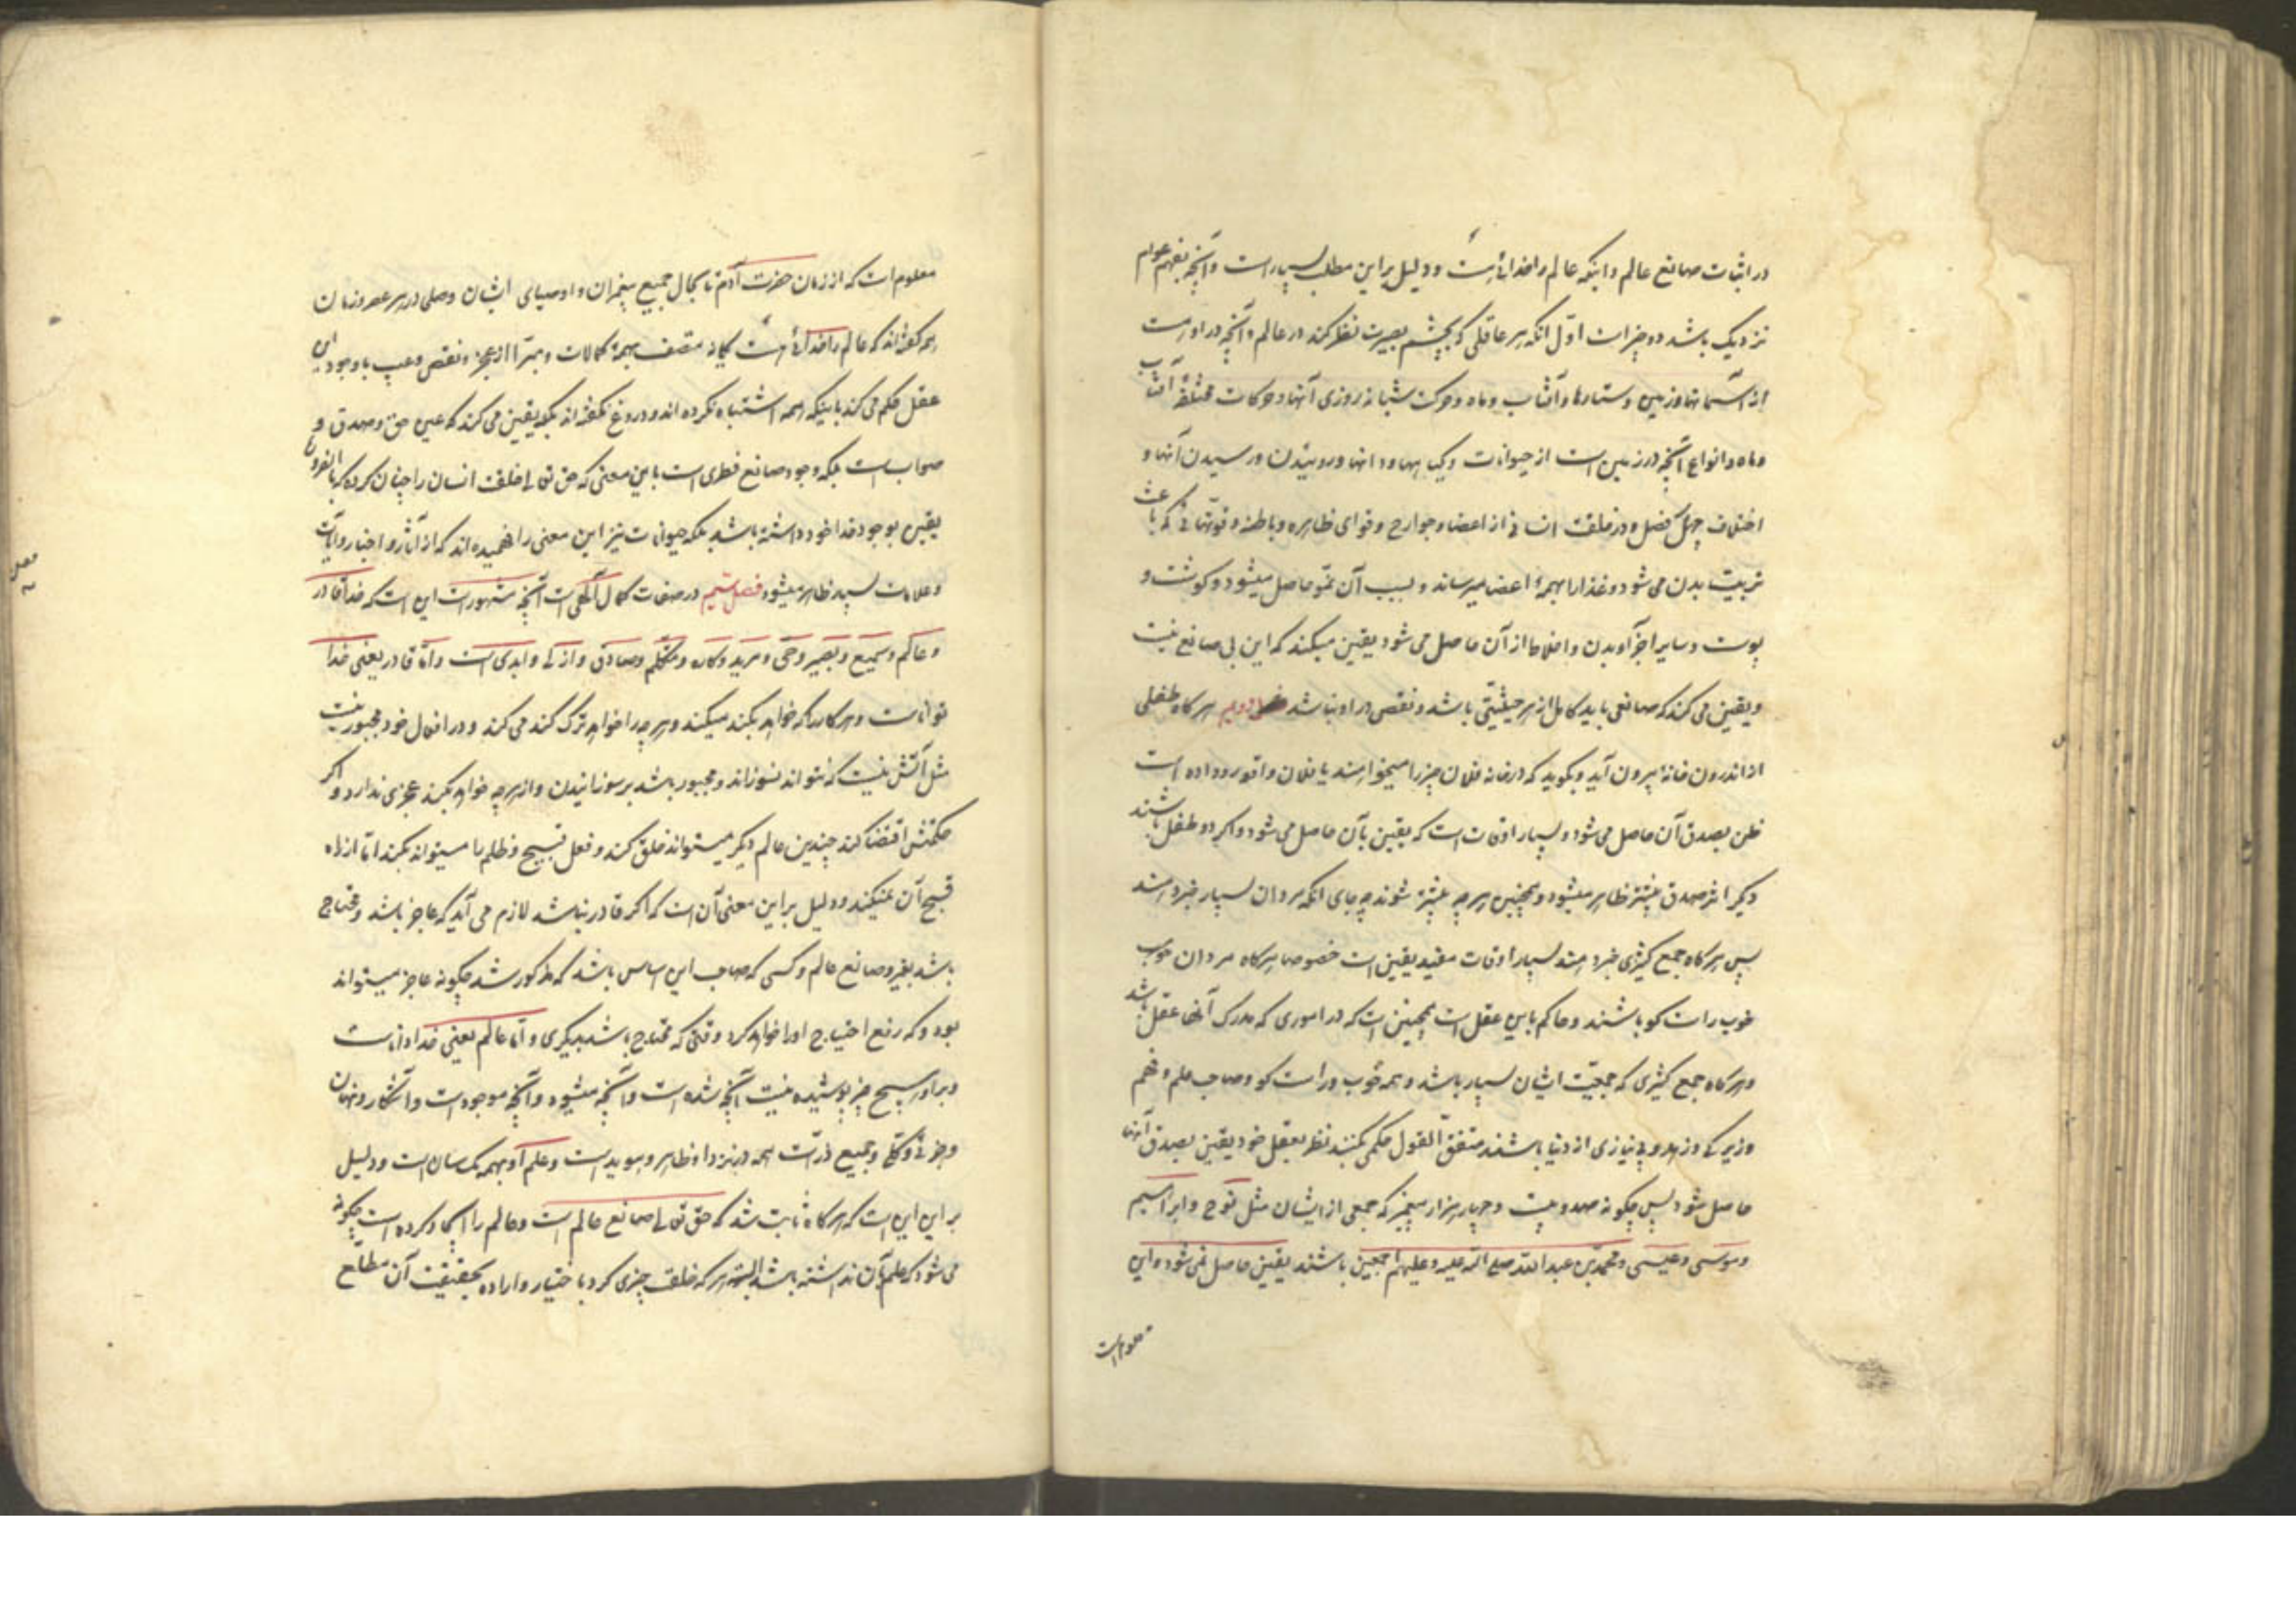 در اثبات صانع عالم و اینکه عالم را خدائی هست و دلیل بر این مطلب بسیار است و آنچه بفهم عوام
نزدیک باشد دو چیز است اول انکه هر عاقلی که بچشم بصیرت نظر کند در عالم و آنچه در او هست
از آسمانها و زمین و ستارها و آفتاب و ماه و حرکت شبانه روزی آنها و حرکات مختلفهٔ آفتاب
و ماه و انواع آنچه در زمین است از حیوانات و گیاهها و دانها و روئیدن و رسیدن آنها و
اختلاف چهار فصل و در خلقت انسانی از اعضا و جوارح و قوای ظاهره و باطنه و قوتهائی که باعث
تربیت بدن می شود و غذا را بهمهٔ اعضا میرساند و بسبب آن نمو حاصل میشود و گوشت و
پوست و سایر اجزآء بدن و اخلاط از آن حاصل می شود یقین میکند که این بی صانع نیست
و یقین می کند که صانعی باید کامل از هر حیثیتی باشد و نقص در او نباشد دویم هرگاه طفلی
از اندرون خانه بیرون آید و بگوید که در خانه فلان چیز را میخواهند یا فلان واقع رو داده است
ظن بصدق آن حاصل می شود و بسیار اوقات است که یقین بآن حاصل می شود و اگر دو طفل باشند
دیگر اثر صدق بیشتر ظاهر میشود و همچنین هر چه بیشتر شوند چه جای انکه مردان بسیار خبر دهند
پس هرگاه جمع کثیری خبر دهند بسیار اوقات مفید یقین است خصوصا هرگاه مردان خوب
خوب راست کو باشند و حاکم باین عقل است همچنین است که در اموری که مدرک آنها عقل باشد
و هرگاه جمع کثیری که جمعیت ایشان بسیار باشد و همه خوب و راست کو و صاحب علم و فهم
و زیرکی و زهد و بی نیازی از دنیا باشند متفق القول حکمی کنند نظر بعقل خود یقین بصدق آنها
حاصل شود پس چگونه صد و بیست و چهار هزار پیغمبر که جمعی از ایشان مثل نوح و ابراهیم
و موسی و عیسی و محمد بن عبد الله صلی الله علیه و علیهم اجمعین باشند یقین حاصل نمی شود و این
معلوم است
معلوم است که از زمان حضرت آدم تا بحال جمیع پیغمبران و اوصیای ایشان و صلحای در هر عصر و زمان
همه گفته اند که عالم را خدائی هست یگانه متصف بهمهٔ کمالات و مبرّا از عجز و نقص و عیب با وجود این
عقل حکم می کند باینکه همه اشتباه نکرده اند و دروغ نگفته اند بلکه یقین می کند که عین حق و صدق و
صواب است بلکه وجود صانع فطری است باین معنی که حق تعالی خلقت انسان را چنان کرده که بالضروره
یقین بوجود خدا خود داشته باشد بلکه حیوانات نیز این معنی را فهمیده اند که از آثار و اخبار و آیات
و علامات بسیار ظاهر میشود فصل در صفات کمال آلهی است آنچه مشهور است این است که خدا قادر
و عالم و سمیع و بصیر و حی و مرید و کاره و متکلم و صادق و ازلی و ابدی است و امّا قادر یعنی خدا
تواناست و هر کار را که خواهد بکند میکند و هر چه را خواهد ترک کند می کند و در افعال خود مجبور نیست
مثل آتش نیست که نتواند نسوزاند و مجبور باشد بر سوزانیدن و از هر چه خواهد بکند عجزی ندارد و اگر
حکمتش اقتضا کند چندین عالم دیگر میتواند خلق کند و فعل قبیح و ظلم را میتواند بکند امّا از راه
قبح آن نمیکند و دلیل بر این معنی آن است که اگر قادر نباشد لازم می آید که عاجز باشد و محتاج
باشد بغیر و صانع عالم و کسی که صاحب این اساس باشد که مذکور شد چگونه عاجز میتواند
بود و که رفع احتیاج او را خواهد کرد وقتی که محتاج باشد بدیگری و امّا عالم یعنی خدا داناست
و بر او هیچ چیز پوشیده نیست آنچه شده است و آنچه میشود و آنچه موجود است و آشکار و نهان
و جزئی و کلی و جمیع ذرات همه در نزد او ظاهر و هویداست و علم او بهمه یکسان است و دلیل
بر این این است که هرگاه ثابت شد که حق تعالی صانع عالم است و عالم را ایجاد کرده است چگونه
می شود که علم بآن نداشته باشد البته هر که خلقت چیزی کرد با ختیار و اراده بحقیقت آن مطلع